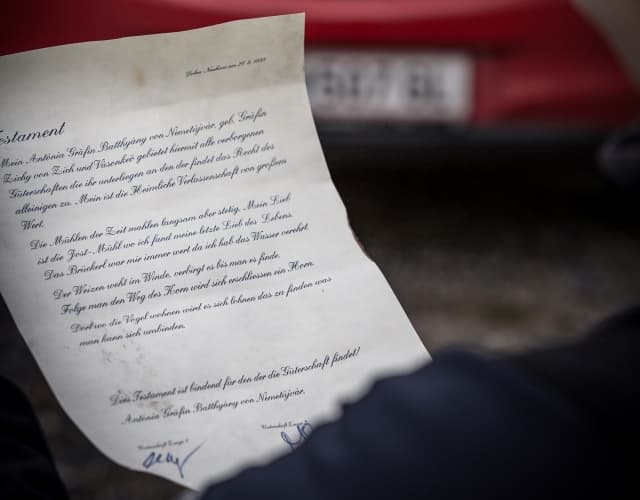 507 BL
Testament
Mein Antónia Gräfin Batthyány von Németújvár, geb. Gräfin
Zichy von Zich und Vásonkeö gebietet hiermit alle verborgenen
Güterschaften die ihr unterliegen an den der findet das Recht des
alleinigen zu. Mein ist die Heimliche Verlassenschaft von großem
Wert.
Die Mühlen der Zeit mahlen langsam aber stetig. Mein Lieb
ist die Jost-Mühl wo ich fand meine letzte Lieb des Lebens.
Das Brückerl war mir immer wert da ich hab das Wasser verehrt.
Der Weizen weht im Winde, verbirgt es bis man es finde.
Folge man den Weg des Horn wird sich erschliessen ein Horn.
Dort wo die Vögel wohnen wird es sich lohnen das zu finden was
man kann sich umbinden.
Dies Testament ist bindend für den der die Güterschaft findet!
Antónia Gräfin Batthyány von Németújvár.